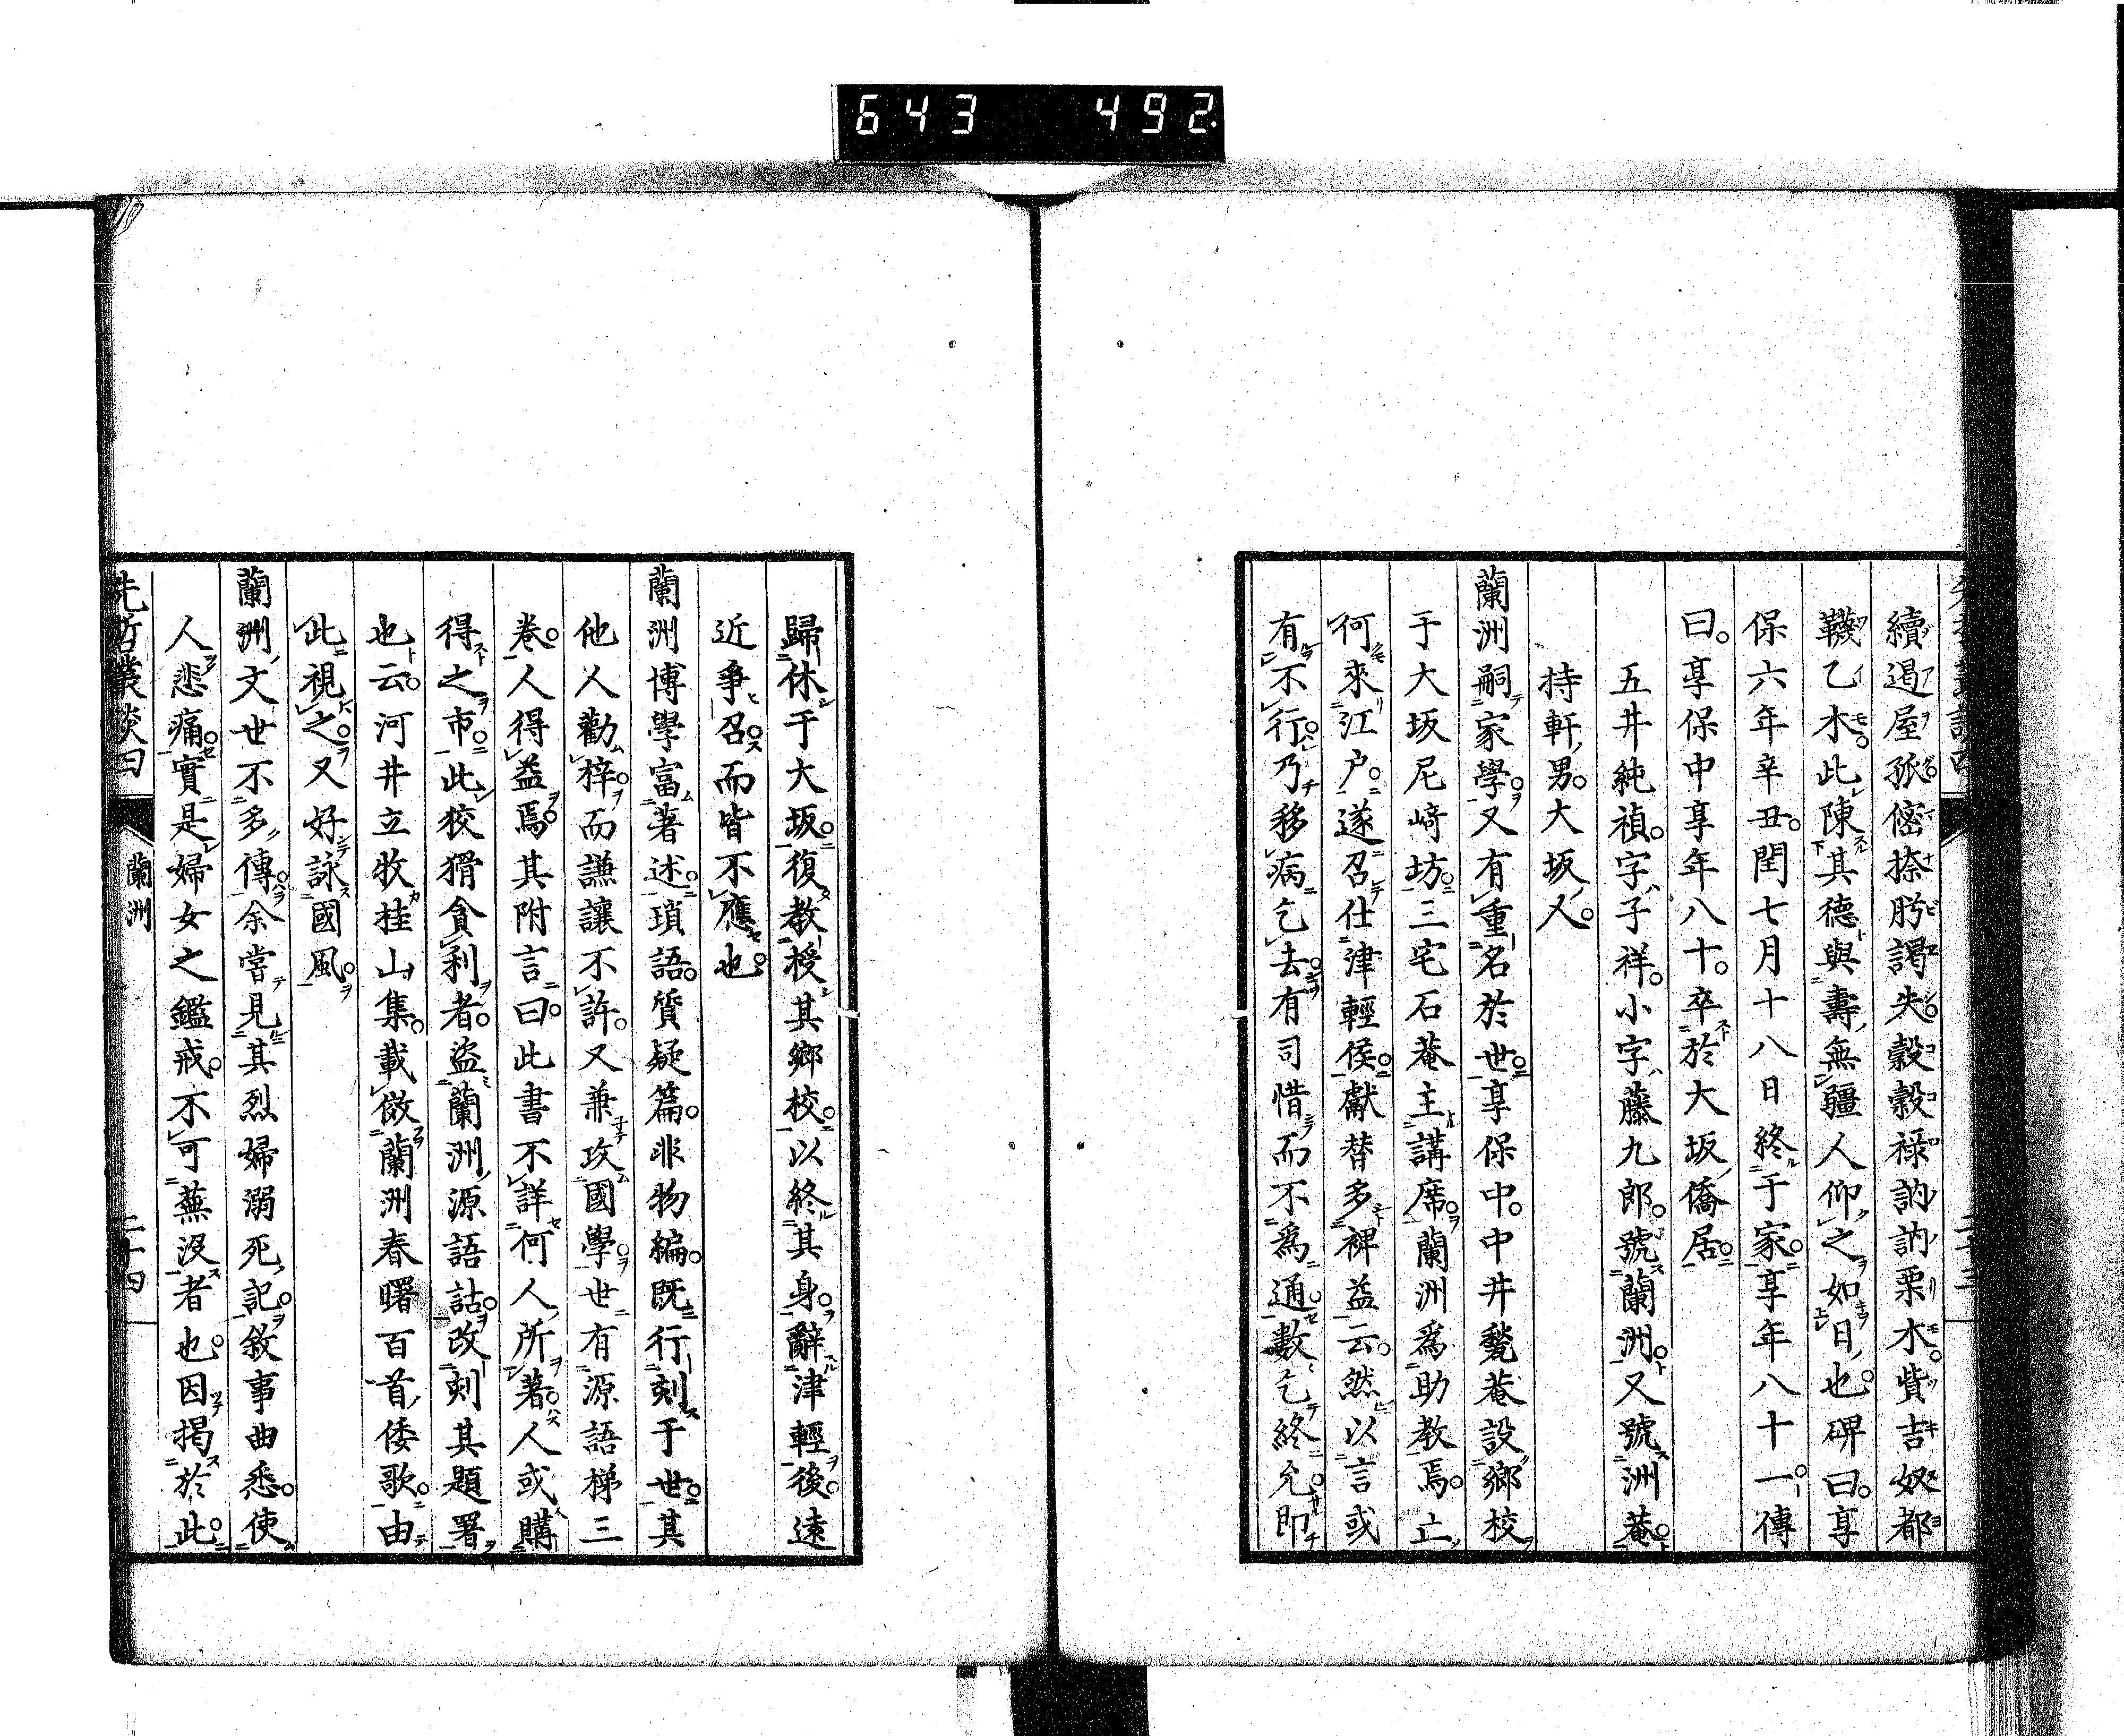 643 492
續遏屋孤僽捺肹謁失縠縠祿訥訥栗木貲吉奴都
韈乙木此陳其德與壽無疆人仰之如日也碑曰享
保六年辛丑閏七月十八日終于家享年八十一傳
曰享保中享年八十卒於大坂僑居
五井純禎字子祥小字藤九郎號蘭洲又號洲菴
持軒男大坂人
蘭洲嗣家學又有重名於世享保中中井甃菴設鄉校
于大坂尼﨑坊三宅石菴主講席蘭洲爲助教焉亡
何來江户遂召仕津輕侯獻替多裨益云然以言或
有不行乃移病乞去有司惜而不爲通數乞終允即
歸休于大坂復教授其鄉校以終其身辭津輕後遠
近爭召而皆不應也
蘭洲博學富著述瑣語質疑篇非物編既行刻于世其
他人勸梓而謙讓不許又兼攻國學世有源語梯三
卷人得益焉其附言曰此書不詳何人所著人或購
得之市此狡猾貪利者盜蘭洲源語詁改刻其題署
也云河井立牧桂山集載倣蘭洲春曙百首倭歌由
此視之又好詠國風
蘭洲文世不多傳余嘗見其烈婦溺死記敘事曲悉使
人悲痛實是婦女之鑑戒不可蕪沒者也因揭於此
先哲叢談四
蘭洲
二十四